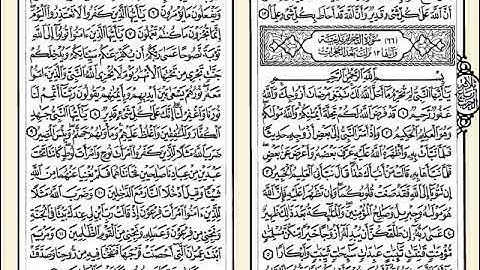 أن الله على كل شيء قدير وأن الله قد أحاط بكل شيء علما ١٢
(٦٦) سورة التحريم مدنية
وآياتها ١٢ نزلت بعد الحجرات
بسم الله الرحمن الرحيم
يأيها النبي لم تحرم ما أحل الله لك تبتغي مرضات أزوجك والله
غفور رحيم ١ قد فرض الله لكم تحلة أيمنكم والله مولىكم
وهو العليم الحكيم ٢ وإذ أسر النبي إلى بعض أزوجه حديثا
فلما نبأت به وأظهره الله عليه عرف بعضه وأعرض عن بعض
فلما نبأها به قالت من أنبأك هذا قال نبأني العليم الخبير ٣
إن تتوبا إلى الله فقد صغت قلوبكما وإن تظهرا عليه فإن الله
هو مولىه وجبريل وصلح المؤمنين والملئكة بعد ذلك ظهير ٤
عسى ربه إن طلقكن أن يبدله أزوجا خيرا منكن مسلمت
مؤمنت قنتت تئبت عبدت سئحت ثيبت وأبكارا ٥
ويفعلون ما يؤمرون ٦ يأيها الذين كفروا لا تعتذروا اليوم
إنما تجزون ما كنتم تعملون ٧ يأيها الذين ءامنوا توبوا إلى الله
توبة نصوحا عسى ربكم أن يكفر عنكم سيئاتكم ويدخلكم
جنت تجري من تحتها الأنهر يوم لا يخزي الله النبي والذين ءامنوا معه
نورهم يسعى بين أيديهم وبأيمنهم يقولون ربنا أتمم لنا
نورنا واغفر لنا إنك على كل شيء قدير ٨ يأيها النبي جهد
الكفار والمنفقين واغلظ عليهم ومأوىهم جهنم وبئس المصير ٩
ضرب الله مثلا للذين كفروا امرأت نوح وامرأت لوط كانتا تحت
عبدين من عبادنا صلحين فخانتاهما فلم يغنيا عنهما من الله
شيئا وقيل ادخلا النار مع الدخلين ١٠ وضرب الله مثلا
للذين ءامنوا امرأت فرعون إذ قالت رب ابن لي عندك بيتا في الجنة
ونجني من فرعون وعمله ونجني من القوم الظلمين ١١ ومريم
ابنت عمرن التي أحصنت فرجها فنفخنا فيه من روحنا وصدقت